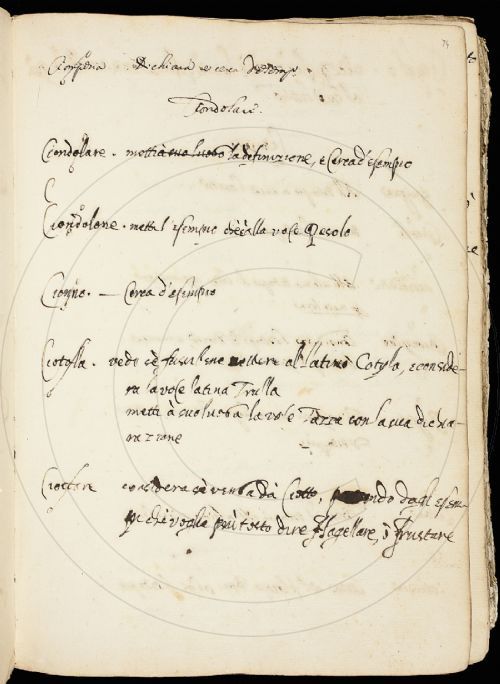 74
Cioppena dichiara e cerca d'esemp.
Ciondolare.
Ciondolare. metti à suo luogo la definizione, e Cerca d'esempio
Ciondolone. metta l'esempio ch'è alla voce Pesolo
Cionno. — Cerca d'esempio
Ciotola. vedi se fusse bene mettere all Latino Cotyla, e conside-
ra la voce latina Trulla
metti à suo luogo la voce Tazza con la sua dichia-
razione
Ciottare considera se venga dà Ciotto, dagl'esem-
pi che voglia più tosto dire flagellare, ò frustare